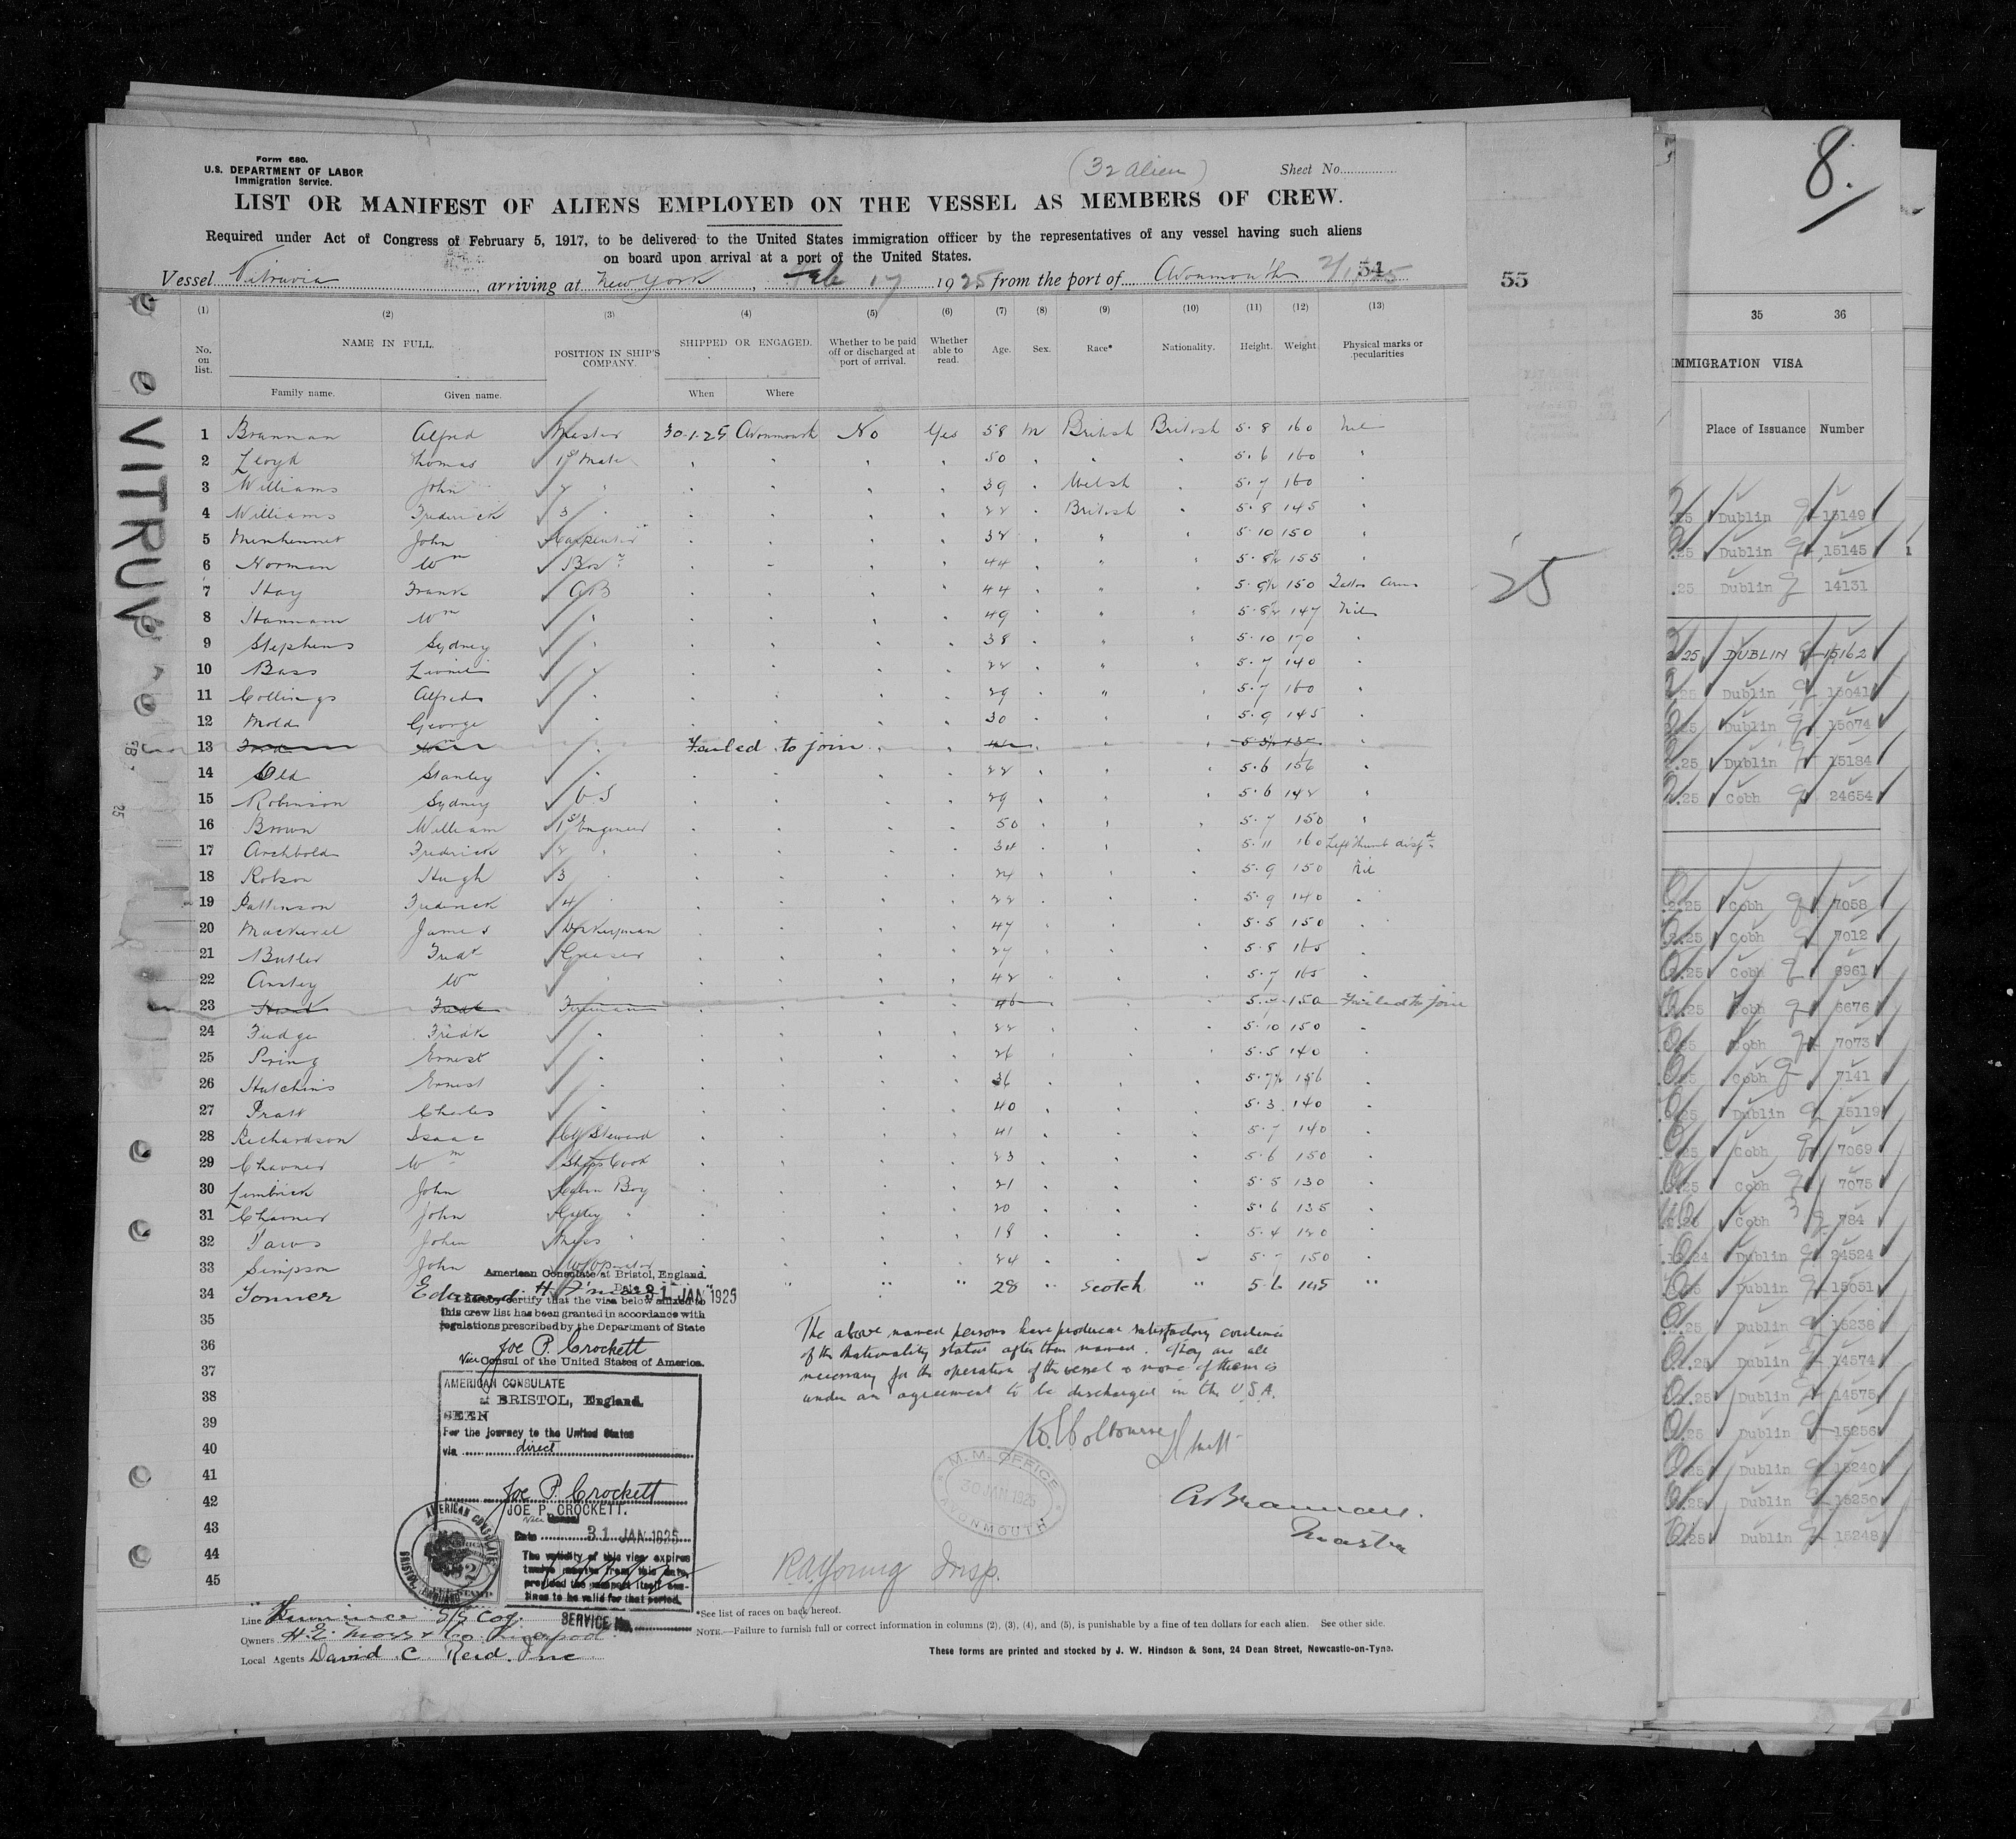 Form 680.
U.S. DEPARTMENT OF LABOR
Immigration Service.
(32 Alien)
Sheet No.
8.
LIST OR MANIFEST OF ALIENS EMPLOYED ON THE VESSEL AS MEMBERS OF CREW.
Required under Act of Congress of February 5, 1917, to be delivered to the United States immigration officer by the representatives of any vessel having such aliens
on board upon arrival at a port of the United States.
Vessel Vitruvia, arriving at New York, Feb 17 1925 from the port of Avonmouth 2/1/25
54
55
VITRUV
(1) (2) (3) (4) (5) (6) (7) (8) (9) (10) (11) (12) (13)
No. on list. NAME IN FULL. POSITION IN SHIP'S COMPANY. SHIPPED OR ENGAGED. Whether to be paid off or discharged at port of arrival. Whether able to read. Age. Sex. Race* Nationality. Height. Weight. Physical marks or peculiarities
Family name. Given name. When Where
1 Brannan Alfred Master 30-1-25 Avonmouth No Yes 58 M British British 5.8 160 Nil
2 Lloyd Thomas 1st Mate " " " " 50 " " " 5.6 160 "
3 Williams John 2 " " " " " 39 " Welsh " 5.7 160 "
4 Williams Frederick 3 " " " " " 22 " British " 5.8 145 "
5 Menhennet John Carpenter " " " " 32 " " " 5.10 150 "
6 Norman Wm Bosn " " " " 44 " " " 5.8½ 155 "
7 Hay Frank AB " " " " 44 " " " 5.9½ 150 Tattoo Arms
8 Hannam Wm " " " " " 49 " " " 5.8½ 147 Nil
9 Stephens Sydney " " " " " 38 " " " 5.10 170 "
10 Bass Lionel " " " " " 22 " " " 5.7 140 "
11 Collings Alfred " " " " " 29 " " " 5.7 160 "
12 Mold George " " " " " 30 " " " 5.9 145 "
13 Wm " Failed to join " " " "
14 Old Stanley " " " " " 22 " " " 5.6 156 "
15 Robinson Sydney OS " " " " 29 " " " 5.6 142 "
16 Brown William 1st Engineer " " " " 50 " " " 5.7 150 "
17 Archbold Fredrick 2 " " " " " 34 " " " 5.11 160 Left Thumb disfd
18 Robson Hugh 3 " " " " " 24 " " " 5.9 150 Nil
19 Pattinson Frederick 4 " " " " " 22 " " " 5.9 140 "
20 Mackerel James Donkeyman " " " " 47 " " " 5.5 150 "
21 Butler Fredk Greaser " " " " 27 " " " 5.8 165 "
22 Anstey Wm " " " " " 42 " " " 5.7 165 "
23 Fredk Fireman " " " " 46 " " " 5.7 150 Failed to join
24 Fudge Fredk " " " " " 22 " " " 5.10 150 "
25 Pring Ernest " " " " " 26 " " " 5.5 140 "
26 Hutchins Ernest " " " " " 36 " " " 5.7½ 156 "
27 Pratt Charles " " " " " 40 " " " 5.3 140 "
28 Richardson Isaac Cf Steward " " " " 41 " " " 5.7 140 "
29 Chavner Wm Ships Cook " " " " 23 " " " 5.6 150 "
30 Limbrick John Cabin Boy " " " " 21 " " " 5.5 130 "
31 Chavner John Galley " " " " " 20 " " " 5.6 135 "
32 John Mess " " " " " 18 " " " 5.4 120 "
33 Simpson John W/Operator " " " 24 " " " 5.7 150 "
34 Tonner Edward H " " " 28 " Scotch " 5.6 145 "
35
36
37
38
39
40
41
42
43
44
45
American Consulate at Bristol, England.
Date 31 JAN 1925
I hereby certify that the visa below affixed to
this crew list has been granted in accordance with
regulations prescribed by the Department of State
Joe P. Crockett
Vice Consul of the United States of America.
AMERICAN CONSULATE
at BRISTOL, England.
SEEN
For the journey to the United States
via direct
Joe P. Crockett
JOE P. CROCKETT.
Vice Consul
Date 31 JAN 1925
The validity of this visa expires
twelve months from this date,
provided the passport itself con-
tinues to be valid for that period.
SERVICE No.
AMERICAN CONSULATE
BRISTOL, ENGLAND
The above named persons have produced satisfactory evidence
of the Nationality stated after their names. They are all
necessary for the operation of the vessel & none of them is
under an agreement to be discharged in the U.S.A.
W. Colbourne
M. M. OFFICE
30 JAN 1925
AVONMOUTH
A Brannan.
Master
R A Young Insp.
Line S/S Coy.
Owners H. E. Moss & Co Liverpool
Local Agents David C. Reid Inc
*See list of races on back hereof.
NOTE.—Failure to furnish full or correct information in columns (2), (3), (4), and (5), is punishable by a fine of ten dollars for each alien. See other side.
These forms are printed and stocked by J. W. Hindson & Sons, 24 Dean Street, Newcastle-on-Tyne.
25
35 36
IMMIGRATION VISA
Place of Issuance Number
25 Dublin 15149
25 Dublin 15145
.25 Dublin 14131
25 DUBLIN 15162
25 Dublin 15041
25 Dublin 15074
.25 Dublin 15184
.25 Cobh 24654
.25 Cobh 7058
.25 Cobh 7012
.25 Cobh 6961
.25 Cobh 6676
25 Cobh 7073
25 Cobh 7141
25 Dublin 15119
25 Cobh 7069
25 Cobh 7075
Cobh 784
24 Dublin 24524
25 Dublin 15051
.25 Dublin 15238
.25 Dublin 14574
.25 Dublin 14575
.25 Dublin 15256
.25 Dublin 15240
.25 Dublin 15250
.25 Dublin 15248